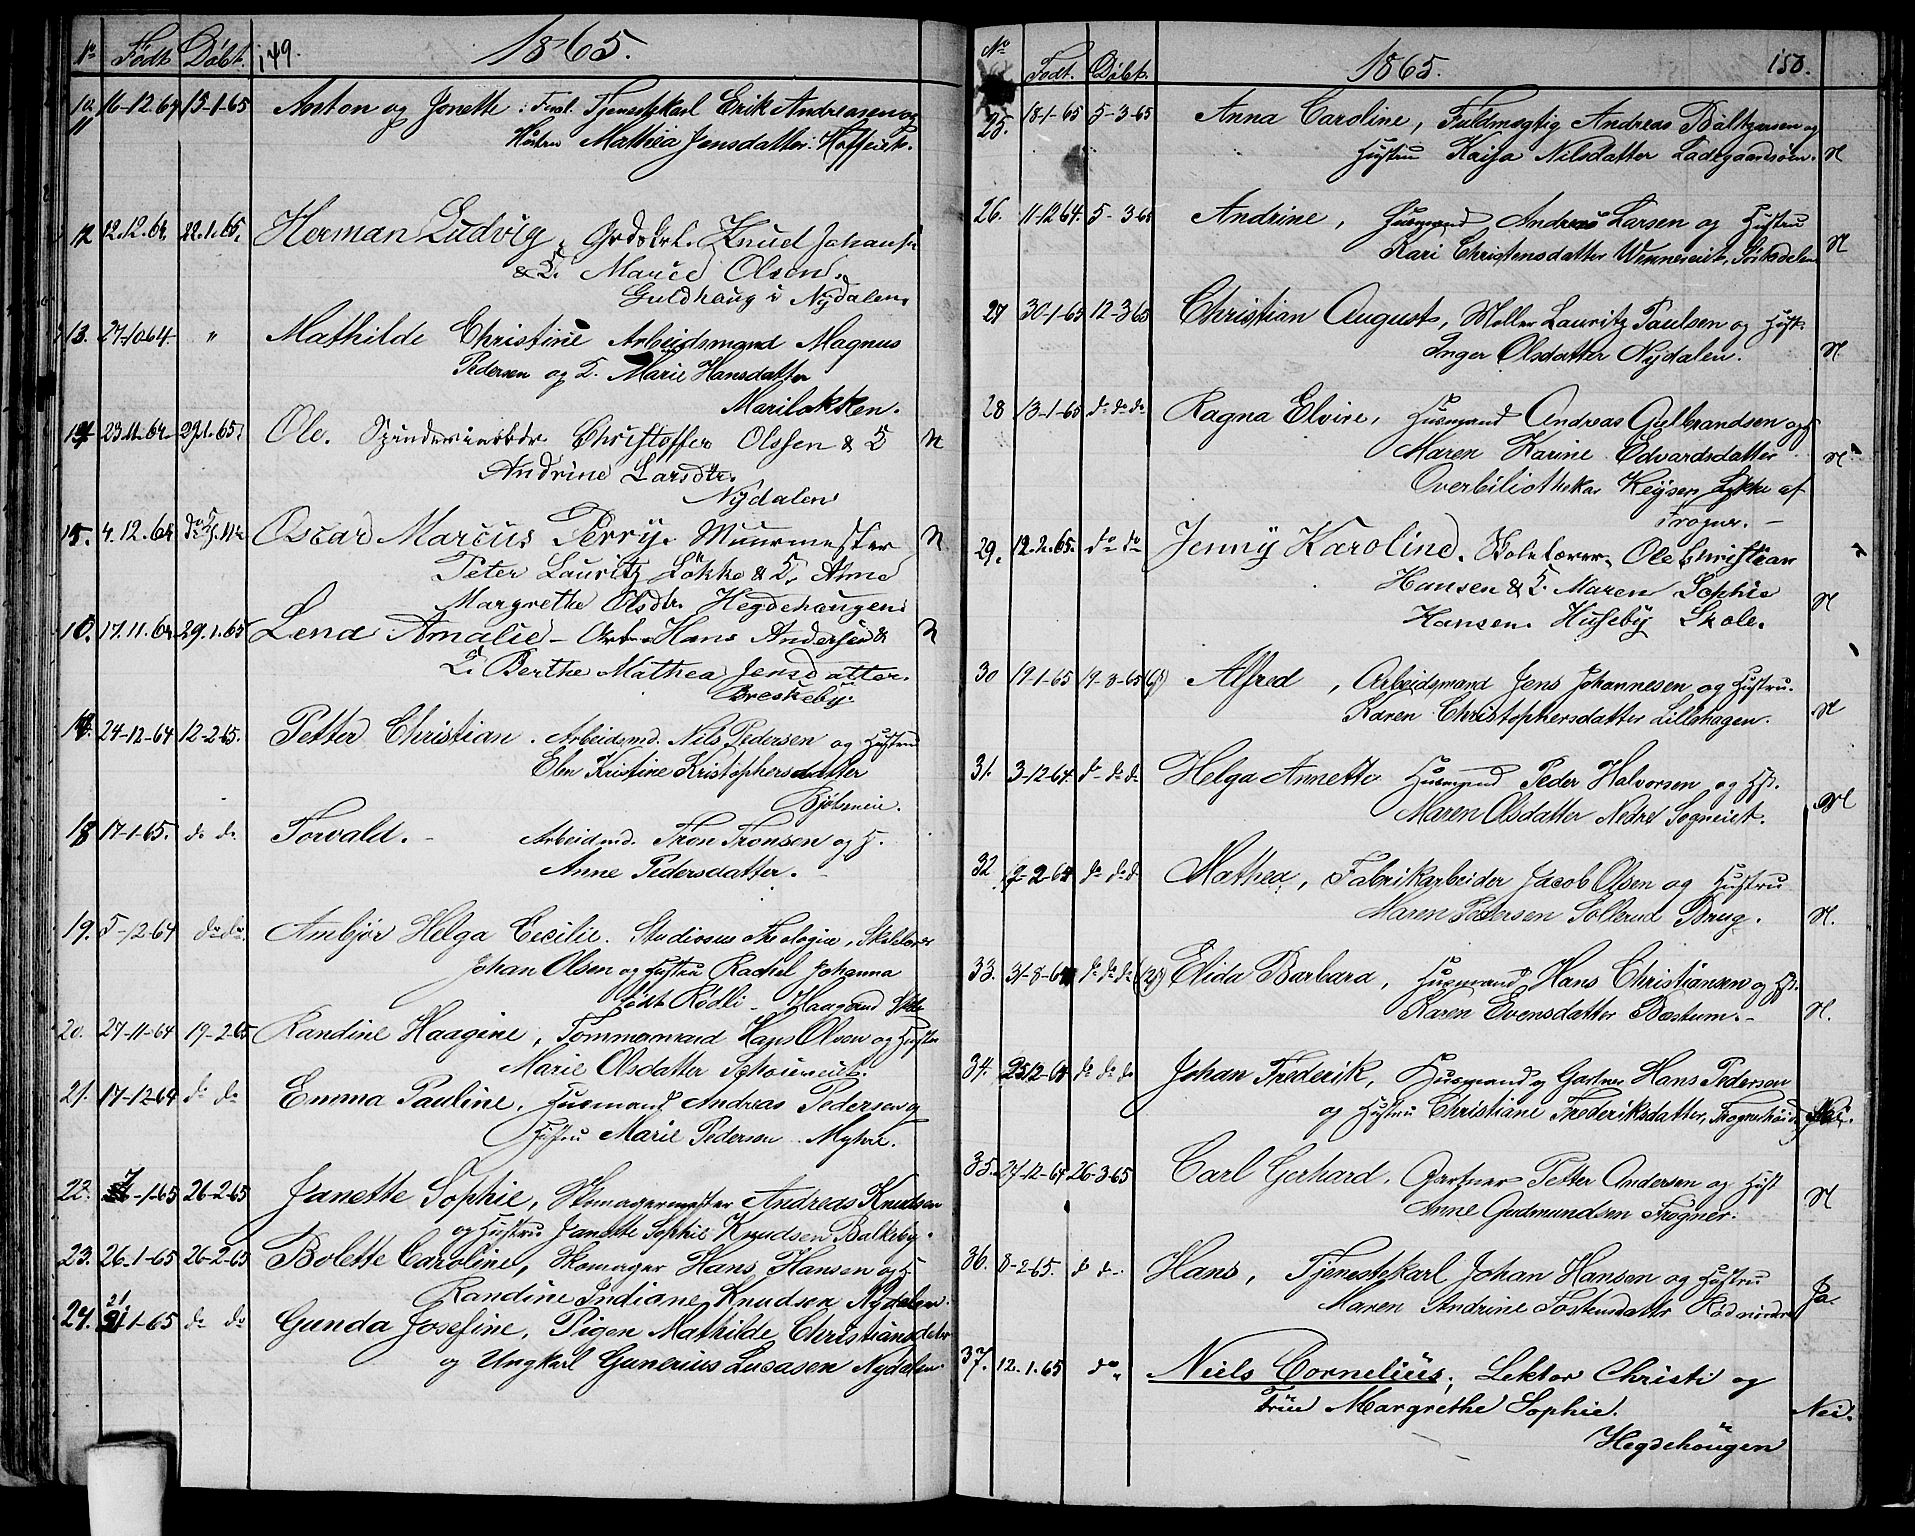 No Født Døbt. 149. 1865.
10. 16-12-64 15-1-65 Anton og Jonette : Forl. Tjenestekarl Erik Andreasen og
11 Hustru Mathea Jensdatter: Hoffeiet.
12 12.12.64. 22.1.65. Herman Ludvig, Grdskrl. Knud Johans
& H. Maree Olsen.
Guldhaug i Nydalen.
13. 27-10-64 " Mathilde Christine Arbeidsmand Magnus
Pedersen og H. Marie Hansdatter
Mariløkken.
14 23.11.64 29.1.65. Ole. Spinderiarbdr Christoffer Olssen & H N
Andrine Larsdtr.
Nydalen
15. 4.12.64 Oscar Marcus Perry. Muurmester N
Peter Lauritz Løkke & H. Anne
Margrethe Olsdtr. Hegdehaugen.
16. 17.11.64 29.1.65 Lena Amalie - Arb. Hans Andersen & N
H. Berthe Mathea Jensdatter.
Breskeby.
17. 24-12-64 12-2-65. Petter Christian. Arbeidsmd. Nils Pedersen og Hustru
Elen Kristine Kristophersdatter
18 17-1-65. do do Torvald. - Arbeidmd. Tron Tronsen og H.
Anne Pedersdatter.
19. 5-12-64 do do. Ambjør Helga Cecilie. Studiosus Theologiæ, Skolelærer
Johan Olsen og Hustru Rachel Johanna
født Rødli - Haagaard Skole
20. 27-11-64 19-2-65 Randine Haagine, Tømmermand Hans Olsen og Hustru
Marie Olsdatter
21. 17-12-64 do do Emma Pauline, Husmand Andreas Pedersen og
Hustru Marie Pedersen Myhre.
22. 7-1-65 26-2-65 Janette Sophie, Skomagermester Andreas Knudsen
og Hustru Janette Sophie Knudsen Balkeby.
23. 26-1-65 26-2-65 Bolette Caroline, Skomager Hans Hansen og H
Randine Indiane Knudsen Nydalen.
24. 21-1-65 do do Gunda Josefine, Pigen Mathilde Christiansdatter
og Ungkarl Gunerius Lucasen Nydalen
No Født. Døbt. 1865. 150.
25. 18-1-65 5-3-65 Anna Caroline, Fuldmægtig Andreas Baltzersen og
Hustru Kaisa Nilsdatter Ladegaardsøen. N
26. 11-12-64. 5-3-65 Andrine, Husmand Andreas Larsen og Hustru
Kari Christensdatter Wennereiet, Sørkedalen N
27 30-1-65 12-3-65 Christian August, Møller Lauritz Paulsen og Hust.
Inger Olsdatter Nydalen. N
28 13-1-65 do do do Ragna Elvire, Husmand Andreas Gulbrandsen og H
Maren Karine Edvardsdatter N
Overbiliothekar Keyser Løkke af
Frogner. -
29. 12.2.65. do do Jenny Karoline. Skolelærer Ole Christian
Hansen & H. Maren Sophie N
Hansen. Huseby Skole.
30 19-1-65 19-3-65 Alfred, Arbeidsmand Jens Johannesen og Hustru.
Karen Christophersdatter Lillehagen. N
31. 3-12-64. do do do Helga Annette Husmand Peder Halvorsen og Hst.
Maren Olsdatter Nedre Sogneiet. N
32 2-2-64 do do do Mathea, Fabrikarbeider Jacob Olsen og Hustru
Maren Pedersen Sollerud Brug. N.
33. 31-8-64 do do do Elida Barbara, Husmand Hans Christiansen og Hst.
Karen Evensdatter Bestum. - N.
34. 25-12-64 do do do Johan Frederik, Husmand og Gartner Hans Pedersen
og Hustru Christiane Frederiksdatter, Nei.
35. 27-12-64 26-3-65 Carl Gerhard, Gartner Petter Andersen og Hust
Anne Gudmundsen Frogner. N
36. 8-2-65. do do Hans, Tjenestekarl Johan Hansen og Hustru
Maren Andrine Ja-
37. 12.1.65 do " Niels Cornelius, Lektor Christi og
Frue Margrethe Sophie. Nei.
Hegdehougen